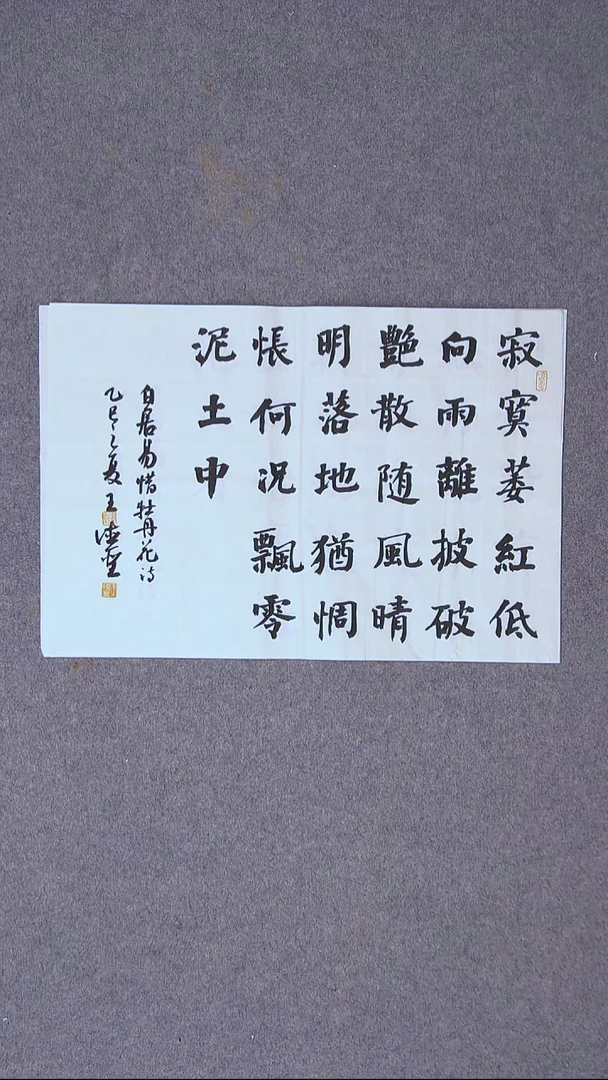 寂寞萎紅低
向雨離披破
艷散随風晴
明落地猶惆
悵何況飄零
泥土中
白居易惜牡丹花诗
乙巳之夏王